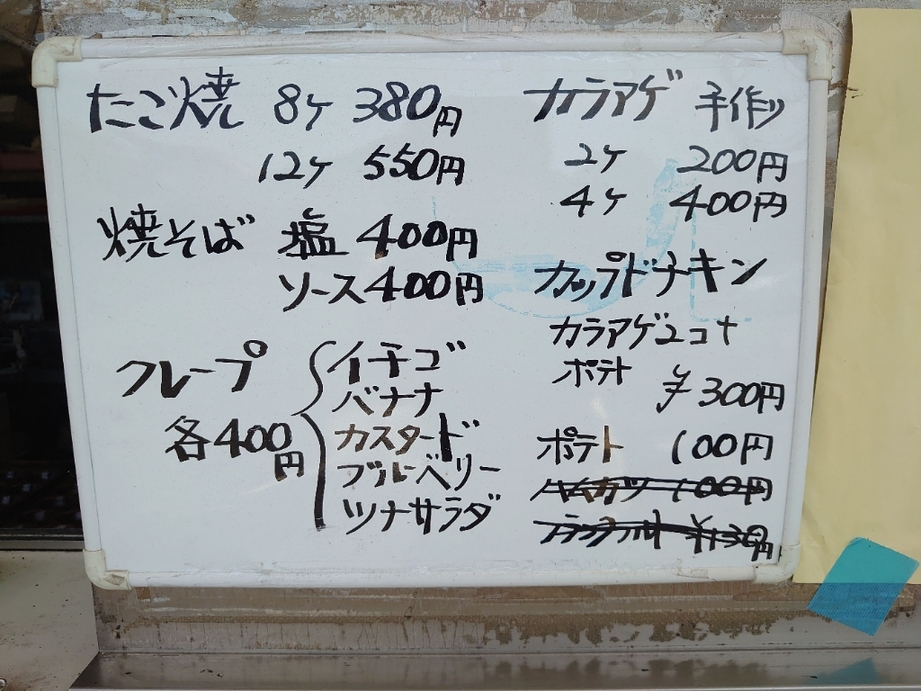 たこ焼 8ケ 380円
12ケ 550円
焼そば 塩 400円
ソース 400円
クレープ
各400円
イチゴ
バナナ
カスタード
ブルーベリー
ツナサラダ
カラアゲ 手作り
2ケ 200円
4ケ 400円
カップドチキン
カラアゲ2コト
ポテト ¥300円
ポテト 100円
ハムカツ 100円